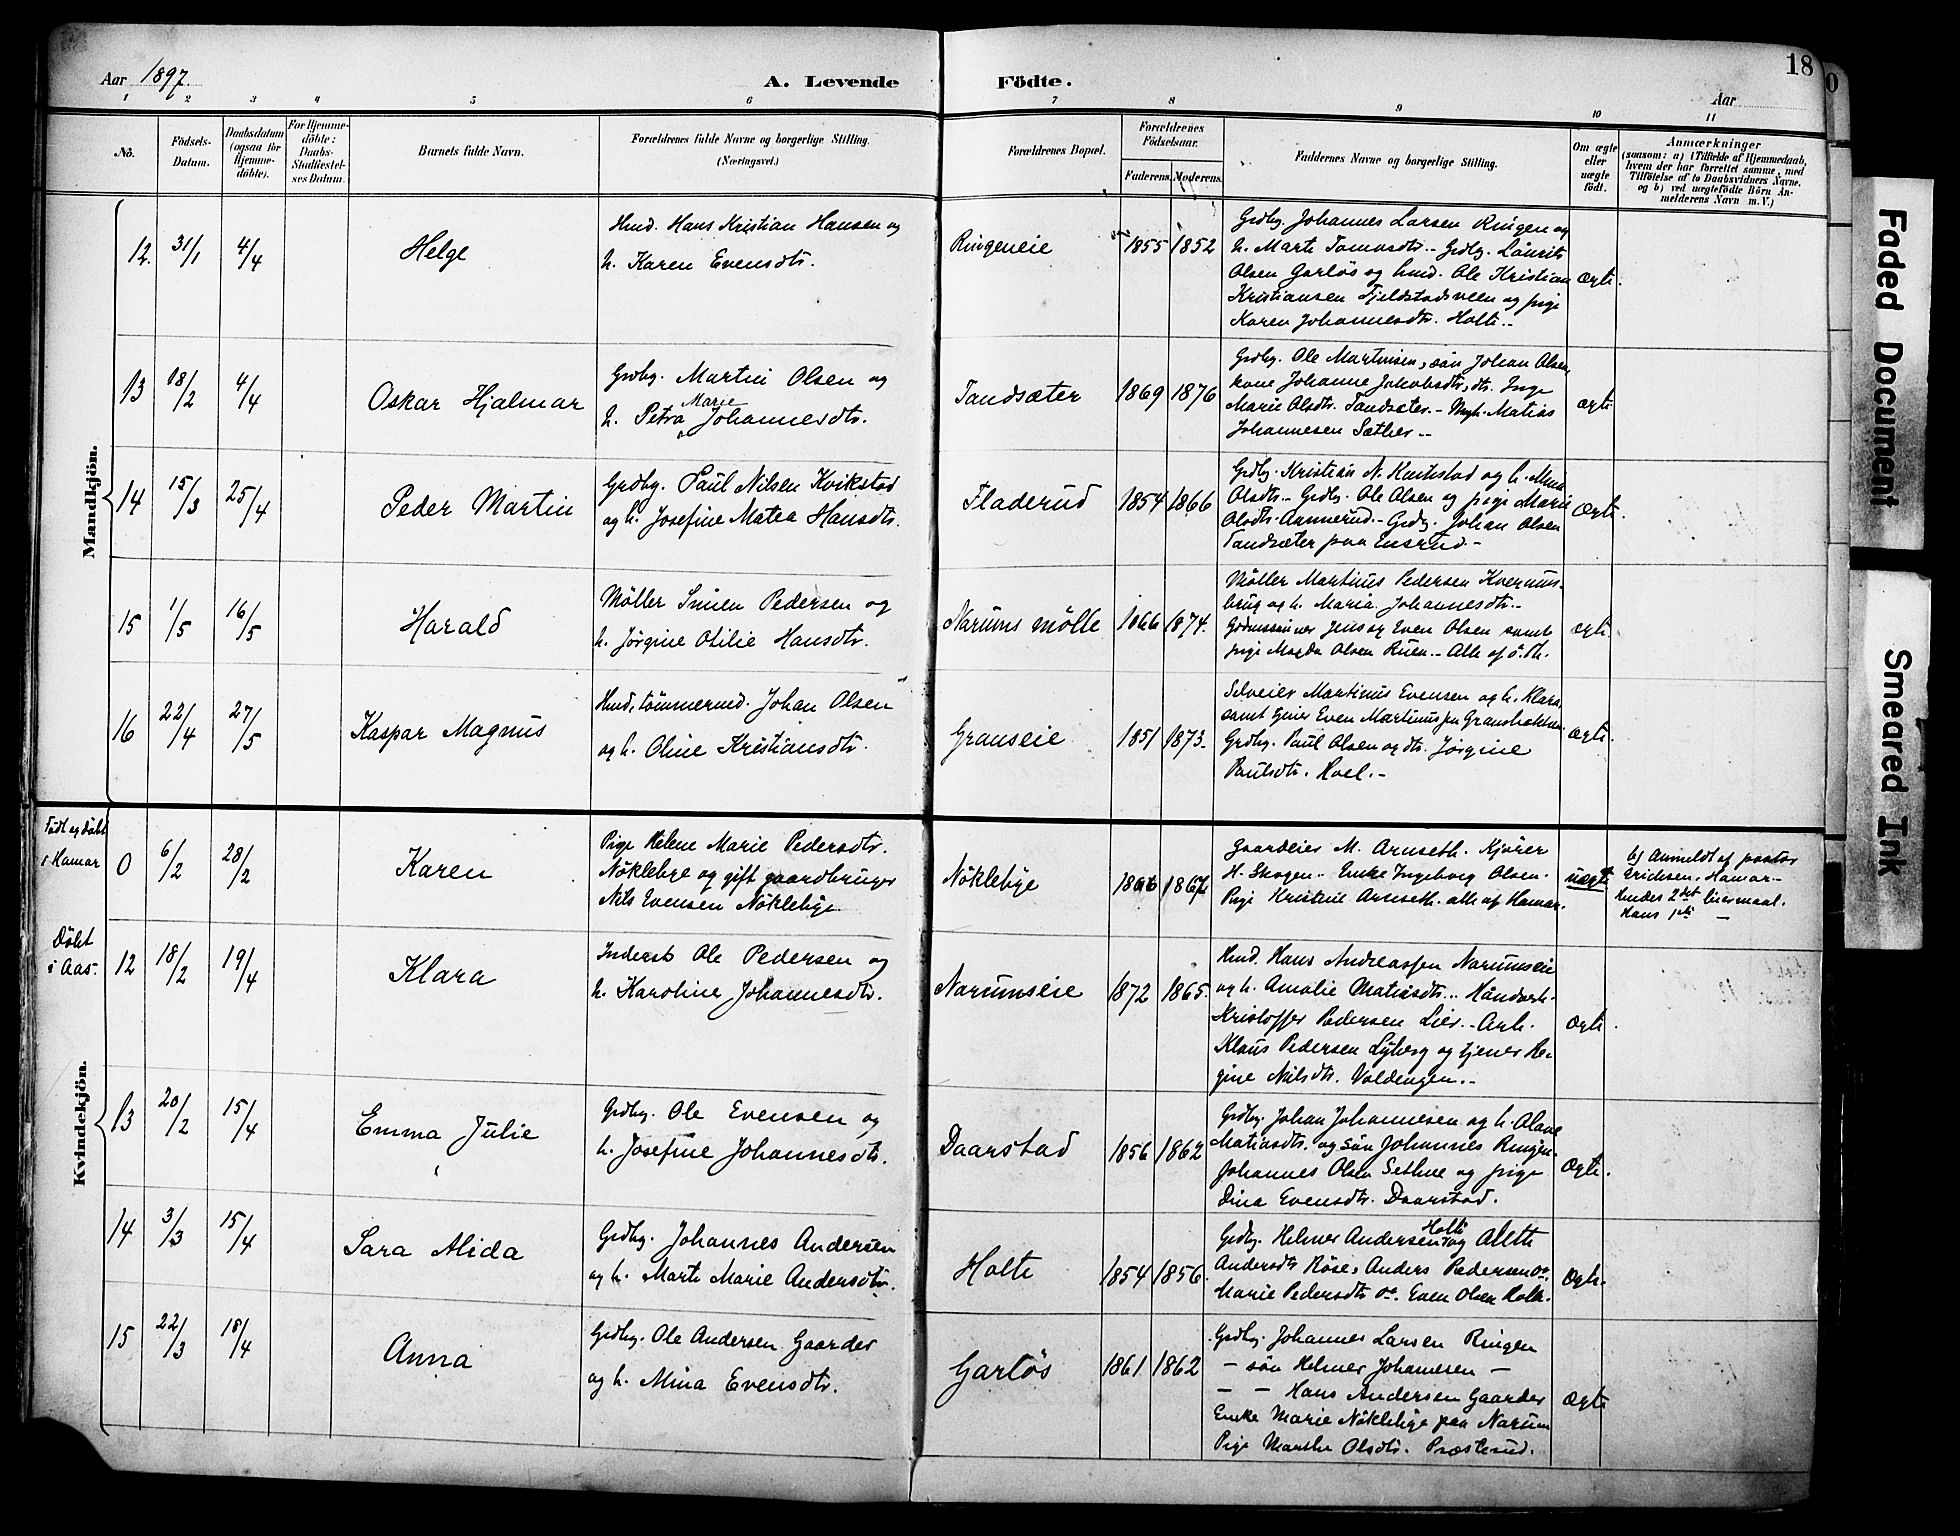 Aar 1897.
A. Levende Födte.
Aar
18
1 2 3 4 5 6 7 8 9 10 11
No.
Födsels-Datum.
Daabsdatum (ogsaa for Hjemme-döbte).
For Hjemme-döbte: Daabs-Stadfæstel-ses Datum.
Barnets fulde Navn.
Forældrenes fulde Navne og borgerlige Stilling.
(Næringsvei.)
Forældrenes Bopæl.
Forældrenes Födselsaar.
Faderens. Moderens.
Faddernes Navne og borgerlige Stilling.
Om ægte eller uægte födt.
Anmærkninger
(saasom: a) i Tilfælde af Hjemmedaab,
hvem der har forrettet samme, med
Tilföielse af to Daabsvidners Navne.
og b) ved uægtefödte Börn An-
melderens Navn m. V.)
Mandkjön.
12. 31/1 4/4 Helge
Hmd. Hans Kristian Hansen og
h. Karen Evensdtr.
Ringeneie 1855 1852
Grdbg. Johannes Larsen Ringen og
h. Marte Tomasdtr. – Grdbg. Laurits
Olsen Garlös og hmd. Ole Kristian
Kristiansen Fjeldstadsveen og pige
Karen Johannesdtr. Holte. –
Ægte.
13 18/2 4/4 Oskar Hjalmar
Grdbg. Martin Olsen og
h. Petra Marie Johannesdtr.
Tandsæter 1869 1876
Grdbg. Ole Martinsen, sön Johan Olsen
kone Johanne Jakobsdtr, dtr. Inge
Marie Olsdtr. Tandsæter. – Ungk. Matias
Johannesen Sæther. –
Ægte
14 15/3 25/4 Peder Martin
Grdbg. Paul Nilsen Kvikstad
og h. Josefine Matea Hansdtr.
Fladerud 1854 1866
Grdbg. Kristian N. Kvikstad og h. Mina
Olsdtr. – Grdbg. Ole Olsen og pige Marie
Olsdtr. Aannerud. – Grdbg. Johan Olsen
Tandsæter paa Ensrud. –
Ægte.
15 1/5 16/5 Harald
Möller Simen Pedersen og
h. Jörgine Otilie Hansdtr.
Narums mölle 1866 1874.
Möller Martinus Pedersen Kvernums-
brug og h. Maria Johannesdtr. –
Gaardmænner Jens og Even Olsen samt
pige Magda Olsen Ruen. – Alle af ö. Th.
Ægte
16 22/4 27/5 Kaspar Magnus
Hmd, tömmermd. Johan Olsen
og h. Oline Kristiansdtr.
Granseie 1851 1873.
Selveier Martinus Evensen og h. Klara
samt tjener Even Martinus paa Gransbakken
Grdbg. Paul Olsen og dtr. Jörgine
Paulsdtr. Hoel. –
Ægte.
Kvindekjön.
Födt og döbt i Hamar
0 6/2 28/2 Karen
Pige Helene Marie Pedersdtr.
Nöklebye og gift gaardbruger
Nils Evensen Nöklebye.
Nöklebye 1867
Gaardeier M. Arnseth. Kjörer
H. Skogen. – Enke Ingeborg Olsen.
Pige Kristine Arnseth. alle af Hamar.
uægte
b) Anmeldt af pastor
Erichsen, Hamar. –
hendes 2det leiermaal.
Hans 1ste –
Döbt i Aas.
12 18/2 19/4 Klara
Inderst Ole Pedersen og
h. Karoline Johannesdtr.
Narumseie 1872 1865.
Hmd. Hans Andreassen Narumseie
og h. Amalie Matiasdtr. – Håndverk.
Kristoffer Pedersen Lier. – Arb.
Klaus Pedersen Lyberg og tjener Re-
gine Nilsdtr. Voldengen. –
Ægte.
13 20/2 15/4 Emma Julie
Grdbg. Ole Evensen og
h. Josefine Johannesdtr.
Daarstad 1856 1862
Grdbg. Johan Johannesen og h. Olave
Matiasdtr. og sön Johannes Ringen.
Johannes Olsen Sethne og pige
Dina Evensdtr. Daarstad.
Ægte.
14 3/3 15/4 Sara Alida
Grdbg. Johannes Andersen
og h. Marte Marie Andersdtr.
Holte 1854 1856.
Grdbg. Helmer Andersen Holte og Alette
Andersdtr Röse, Anders Pedersen og
Marie Pedersdtr og Even Olsen Holte.
Ægte.
15 22/3 18/4 Anna
Grdbg. Ole Andersen Gaarder
og h. Mina Evensdtr.
Garlös 1861 1862
Grdbg. Johannes Larsen Ringen
– sön Helmer Johannesen –
– – Hans Andersen Gaarder
Enke Marie Nöklebye paa Narum
Pige Marthe Olsdtr. Præsterud.
Ægte
Faded Document
Smeared Ink